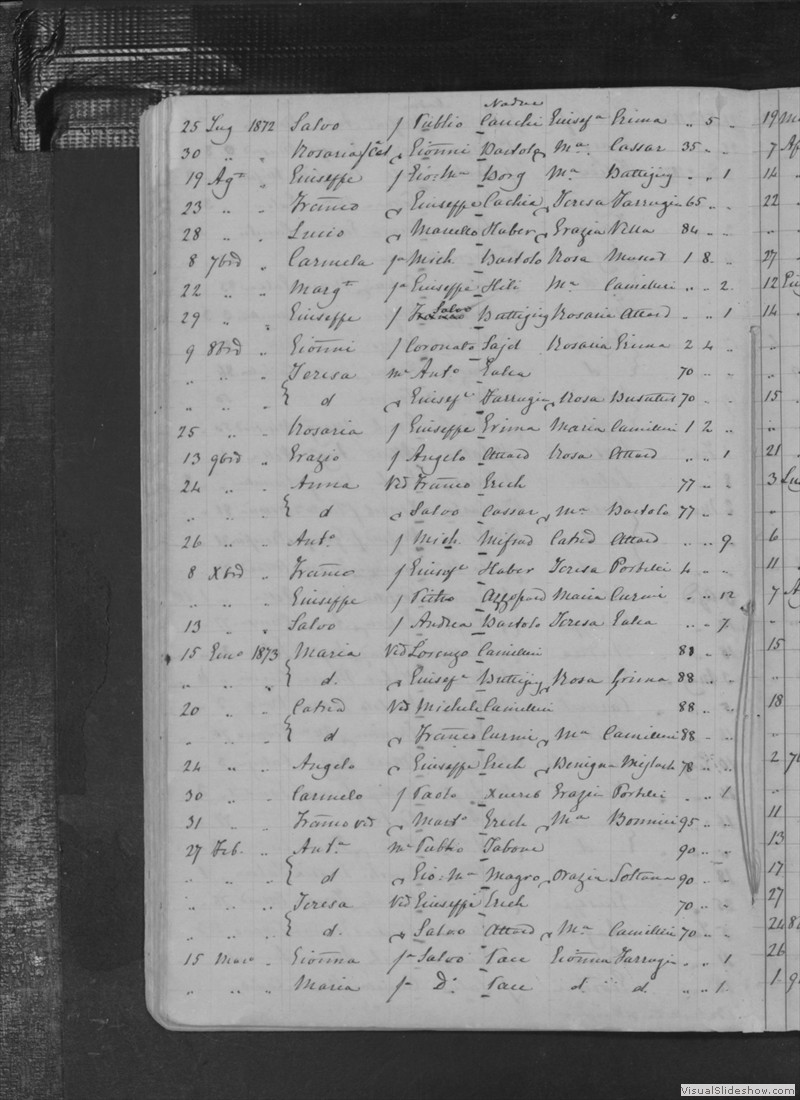 Nadur
25 Lug 1872 Salvo f Publio Cauchi Giusepa Grima .. 5 ..
30 .. .. Rosaria Gionni Bartolo Ma. Cassar 35 .. ..
19 Agto .. Giuseppe f Gio: Ma Borg Ma Buttigieg .. .. 1
23 .. .. Franco Giuseppe Cachia Teresa Farrugia 65 .. ..
28 .. .. Lucio Haber Grazia Vella 84 .. ..
8 7bre .. Carmela fa Mich. Bartolo Rosa Muscat 1 8 ..
22 .. .. Margta fa Giuseppe Hili Ma Camilleri .. .. 2
29 .. .. Giuseppe f Salvo Buttigieg Rosaria Attard .. .. 1
9 8bre .. Gionni f Coronato Sajd Rosaria Grima 2 4 ..
.. .. .. Teresa me Anto 70 .. ..
.. .. .. d Giusepe Farrugia Rosa Busuttil 70 .. ..
25 .. .. Rosaria f Giuseppe Grima Maria Camilleri 1 2 ..
13 9bre .. Grazio f Angelo Attard Rosa Attard .. .. 1
24 .. .. Anna Ved Franco Grech 77 .. ..
.. .. .. d Salvo Cassar Ma Bartolo 77 .. ..
26 .. .. Anto f Mich. Mifsud Catna Attard .. .. 9
8 Xbre .. Franco f Giusepe Haber Teresa Portelli 4 .. ..
.. .. .. Giuseppe f Pietro Azzopard Maria Curmi .. .. 12
13 .. .. Salvo f Andrea Bartolo Teresa .. .. 7
15 Geno 1873 Maria Ved Lorenzo Camilleri 88 .. ..
.. .. .. d. Giusepe Buttigieg Rosa Grima 88 .. ..
20 .. .. Catna Ved Michele Camilleri 88 .. ..
.. .. .. d Franco Curmi Ma Camilleri 88 .. ..
24 .. .. Angelo Giuseppe Grech Benigna 78 .. ..
30 .. .. Carmelo f Paolo Xuereb Grazia Portelli .. .. 1
31 .. .. Franco Ved Marto Grech Ma Bonnici 95 .. ..
27 Feb. .. Anta me Publio Tabone 90 .. ..
.. .. .. d Gio: Ma Magro Grazia Soltana 90 .. ..
.. .. .. Teresa Ved Giuseppe Grech 70 .. ..
.. .. .. d. Salvo Attard Ma Camilleri 70 .. ..
15 Marzo .. Gionna fa Salvo Pace Gionna Farrugia .. .. 1
.. .. .. Maria fa Do Pace d. d. .. .. 1
VisualSlideshow.com